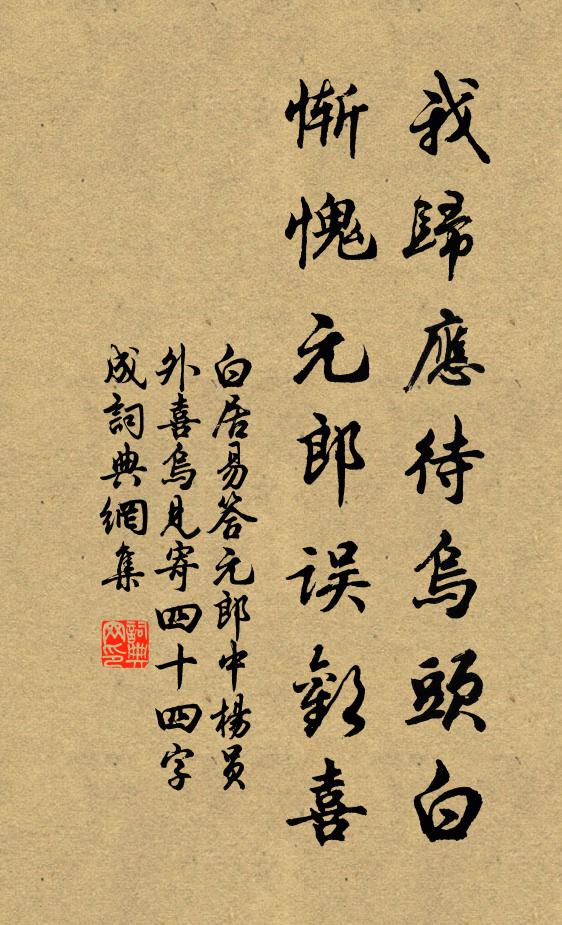 我歸應待烏頭白
慚愧元郎误歡喜
白居易答元郎中楊员
外喜烏見寄四十四字
成詞典網集
詞典
网印